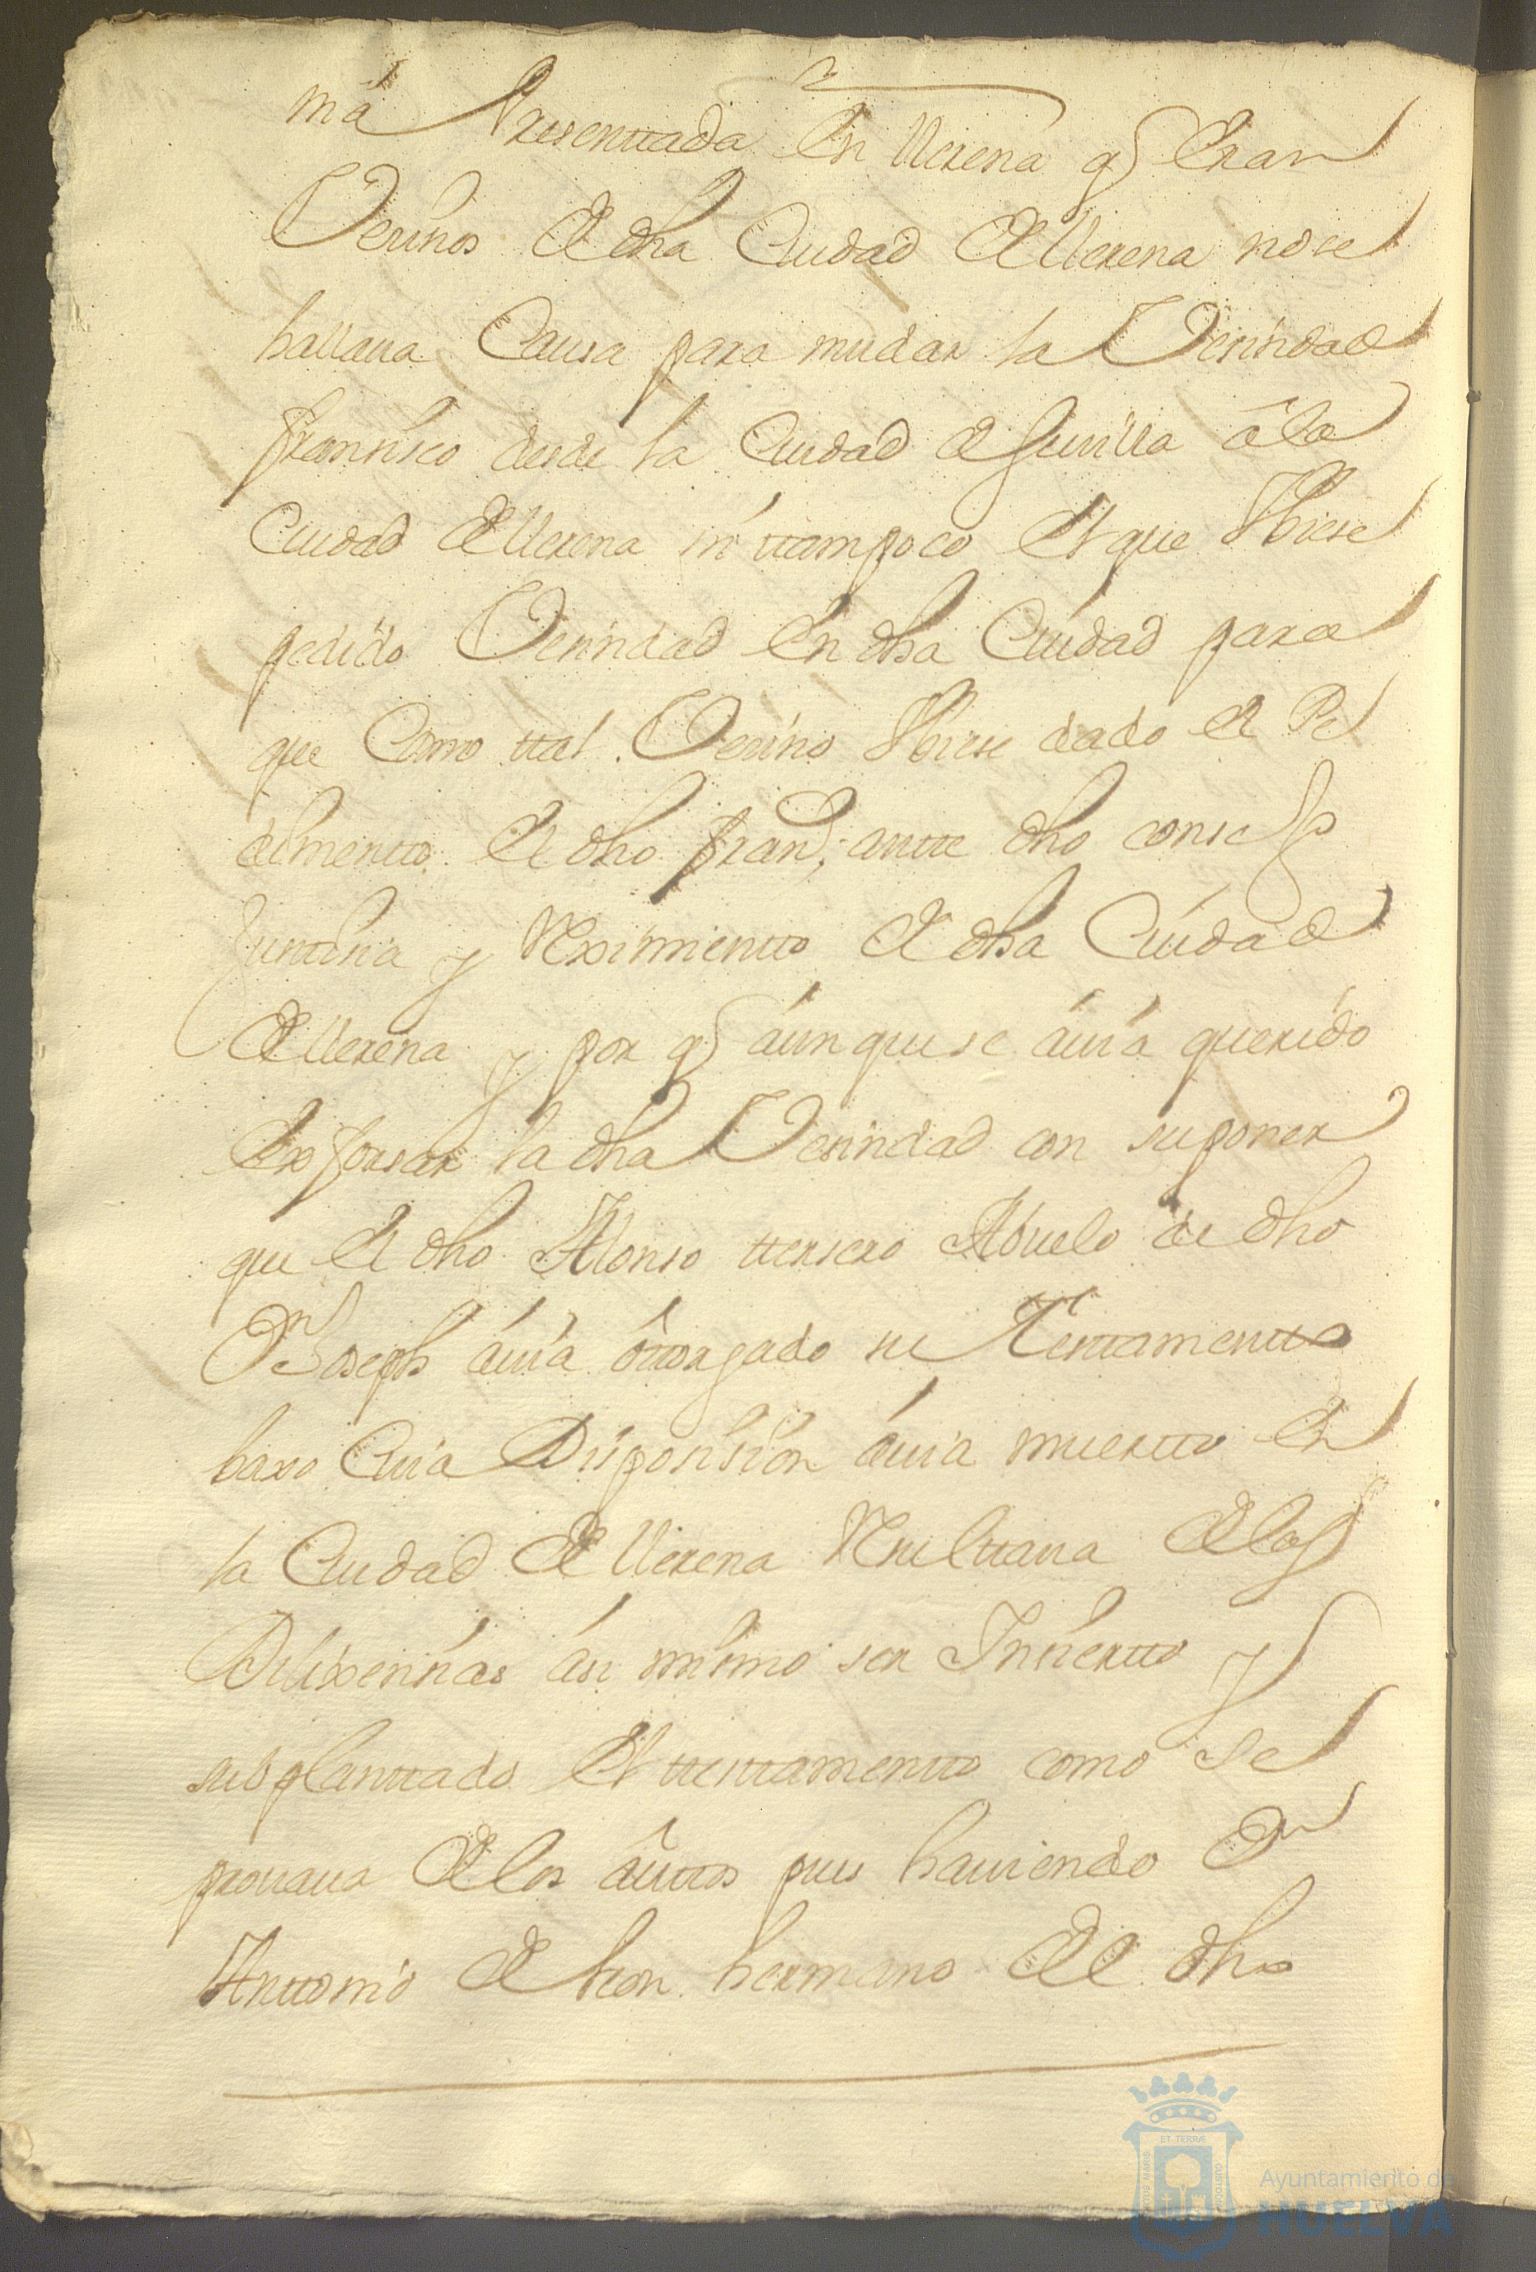 ma Presenttada En llerena q Eran
Vecinos de dha Ciudad de llerena no se
hallaua Causa para mudar la Vecindad
francisco desde la Ciudad de Seuilla a la
Ciudad de llerena ni ttampoco El que Vbiese
pedido Vecindad En dha Ciudad para
que Como ttal Vecino Vbiese dado el Pe
dimentto El dho Franco; antte dho consejo
Justicia y Reximientto de dha Ciudad
de llerena y por q aunque se auia querido
Exforsar la dha Vecindad con suponer
que El dho Alonso ttersero Abuelo de dho
Dn Joseph auia ôttorgado su Testtamentto
baxo Cuia Disposision auia muertto En
la Ciudad de llerena Resulttaua de las
Dilixencias asi mismo ser Inciertto y
subplanttado El ttesttamentto como se
prouaua de los auttos pues hauiendo Dn
Anttonio de leon hermano del dho
Ayuntamiento de
HUELVA